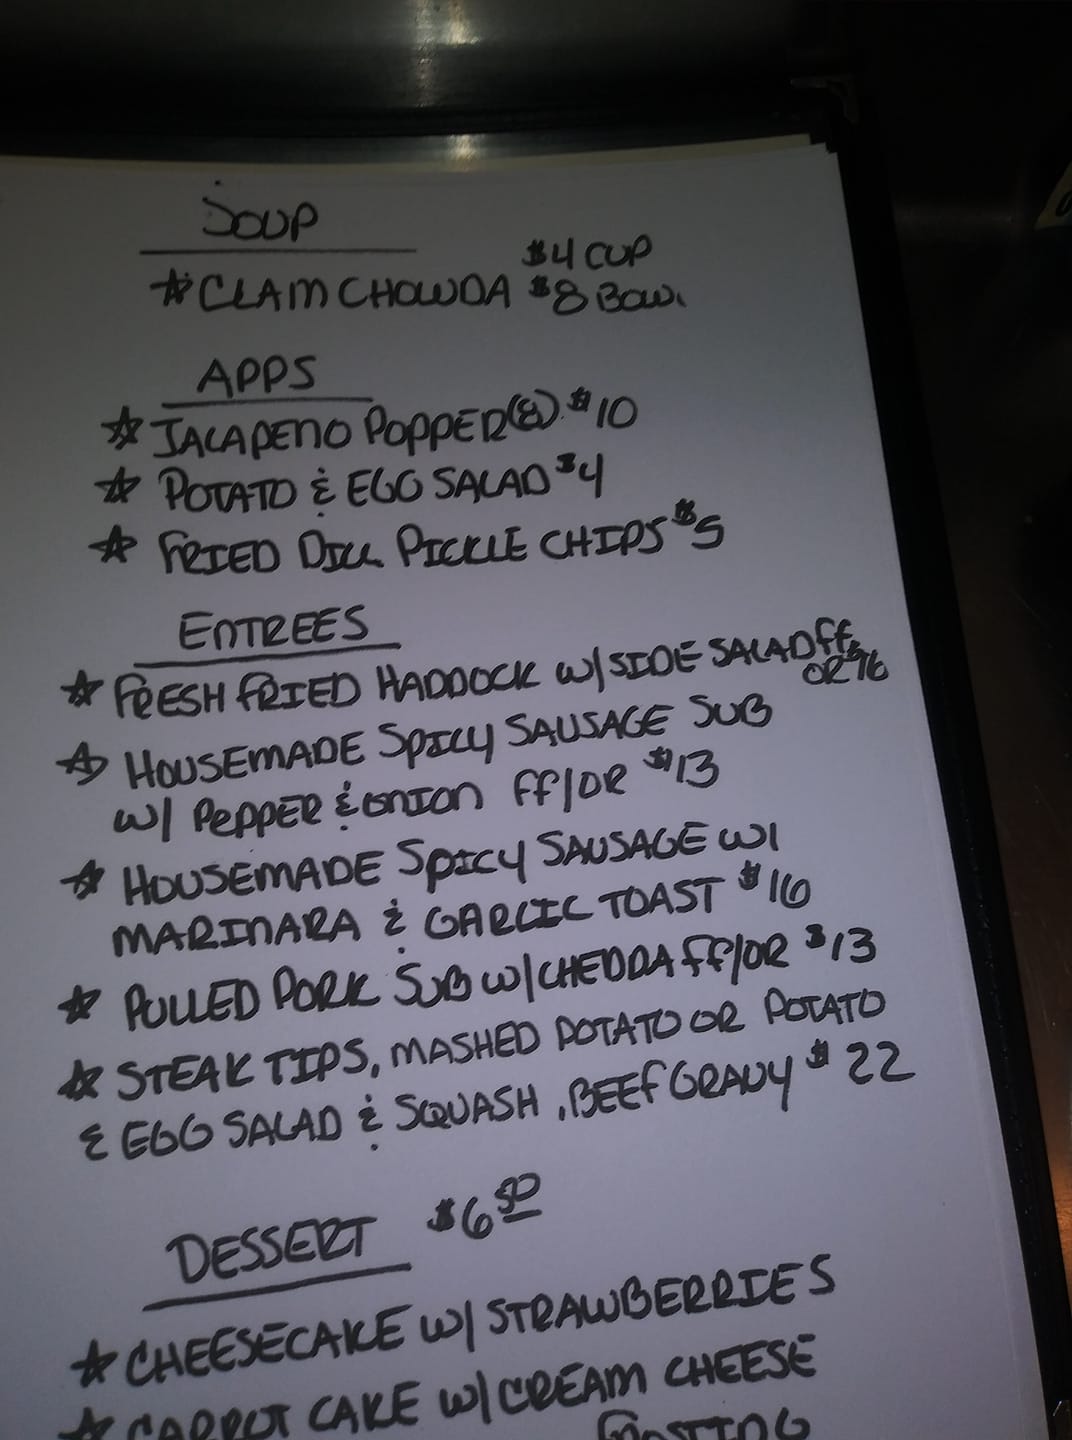 SOUP
$4 CUP
☆ CLAM CHOWDA $8 BOWL
APPS
☆ JALAPENO POPPER(8) $10
☆ POTATO & EGG SALAD $4
☆ FRIED DILL PICKLE CHIPS $5
ENTREES
☆ FRESH FRIED HADDOCK W/ SIDE SALAD FF
OR $16
☆ HOUSEMADE SPICY SAUSAGE SUB
W/ PEPPER & ONION FF/OR $13
☆ HOUSEMADE SPICY SAUSAGE W/
MARINARA & GARLIC TOAST $16
☆ PULLED PORK SUB W/ CHEDDA FF/OR $13
☆ STEAK TIPS, MASHED POTATO OR POTATO
& EGG SALAD & SQUASH, BEEF GRAVY $22
DESSERT $6.50
☆ CHEESECAKE W/ STRAWBERRIES
☆ CARROT CAKE W/ CREAM CHEESE
FROSTING